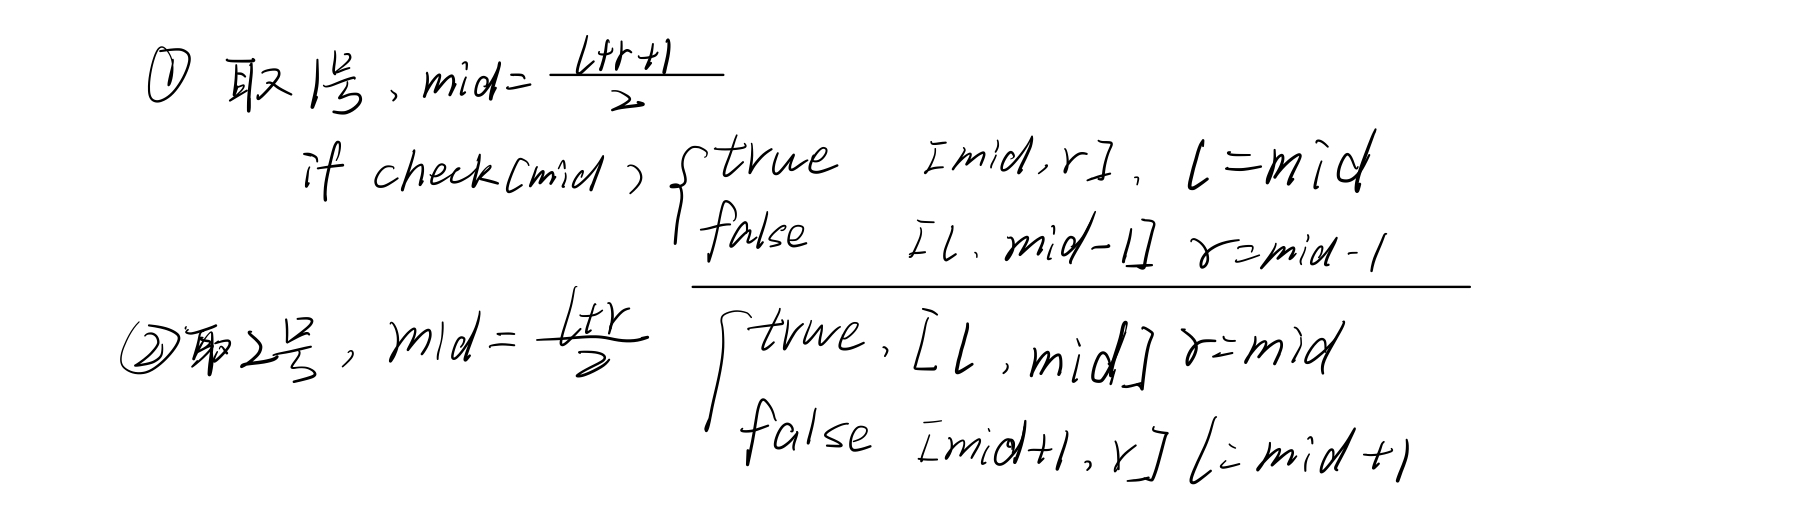 ① 取1号, mid = (l+r+1)/2
if check(mid) { true [mid, r], l=mid
false [l, mid-1] r=mid-1
② 取2号, mid = (l+r)/2 { true, [l, mid] r=mid
false [mid+1, r] l=mid+1